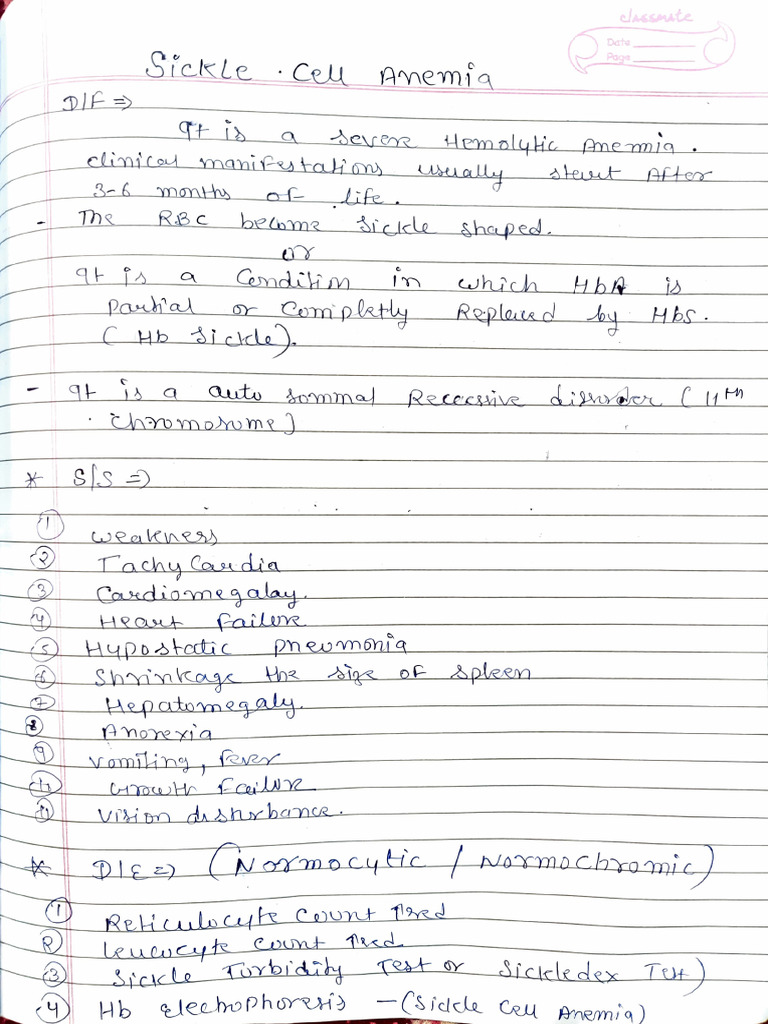 classmate
Date
Page
Sickle . Cell Anemia
D/F ⇒
It is a severe Hemolytic Anemia.
clinical manifestations usually start After
3-6 months of life.
- The RBC become sickle shaped.
or
It is a Condition in which HbA is
partial or Completly Replaced by HbS.
( Hb sickle).
- It is a auto sommal Rececssive disorder ( 11th
chromosome)
* S/S ⇒
① weakness
② Tachy Cardia
③ Cardiomegalay.
④ Heart Failure
⑤ Hypostatic pneumonia
⑥ Shrinkage the size of spleen
⑦ Hepatomegaly.
⑧ Anorexia
⑨ vomiting, fever
⑩ Growth Failure
⑪ vision disturbance.
* D/E ⇒ (Normocytic / Normochromic)
① Reticulocyte Count ↑sed
② leucocyte Count ↑sed
③ Sickle Turbidity Test or Sickledex Test)
④ Hb Electrophoresis - (Sickle Cell Anemia)